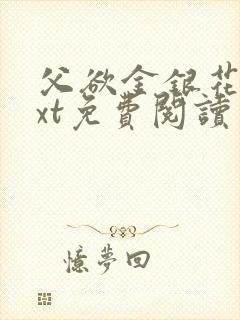 父欲金银花
xt免費閱讀
憶夢回